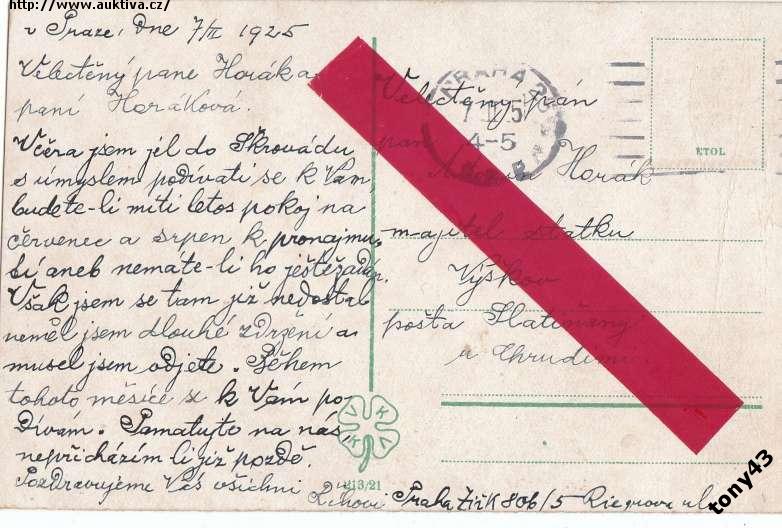 http://www.auktiva.cz/
v Praze, Dne 7/II 1925
Velectěný pane Horák a
paní Horáková.
Včera jsem jel do Škrovádu
s úmyslem podívati se k Vám,
budete-li míti letos pokoj na
červenec a srpen k pronajmu
bí aneb nemáte-li ho ještě
Však jsem se tam již nedostal
neměl jsem dlouhé zdržení a
musel jsem odjete. Během
tohoto měsíce se k Vám po
dívám. Pamatujte na nás,
nepřicházím li již pozdě.
Pozdravujeme Vás všichni
Praha Žižk 806/5 Riegrova ul
Velectěný pán
pan Horák
majitel statku
Výškov
pošta Slatiňany
u Chrudimi.
PRAHA
4-5
ETOL
V K
K V
213/21
tony43